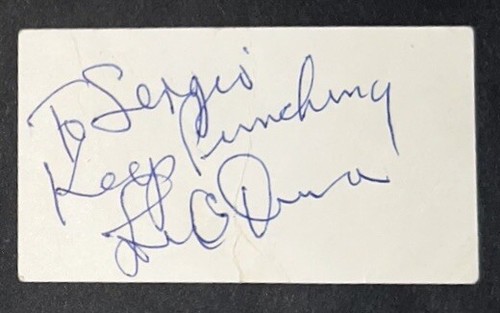 To Sergio
Keep Punching